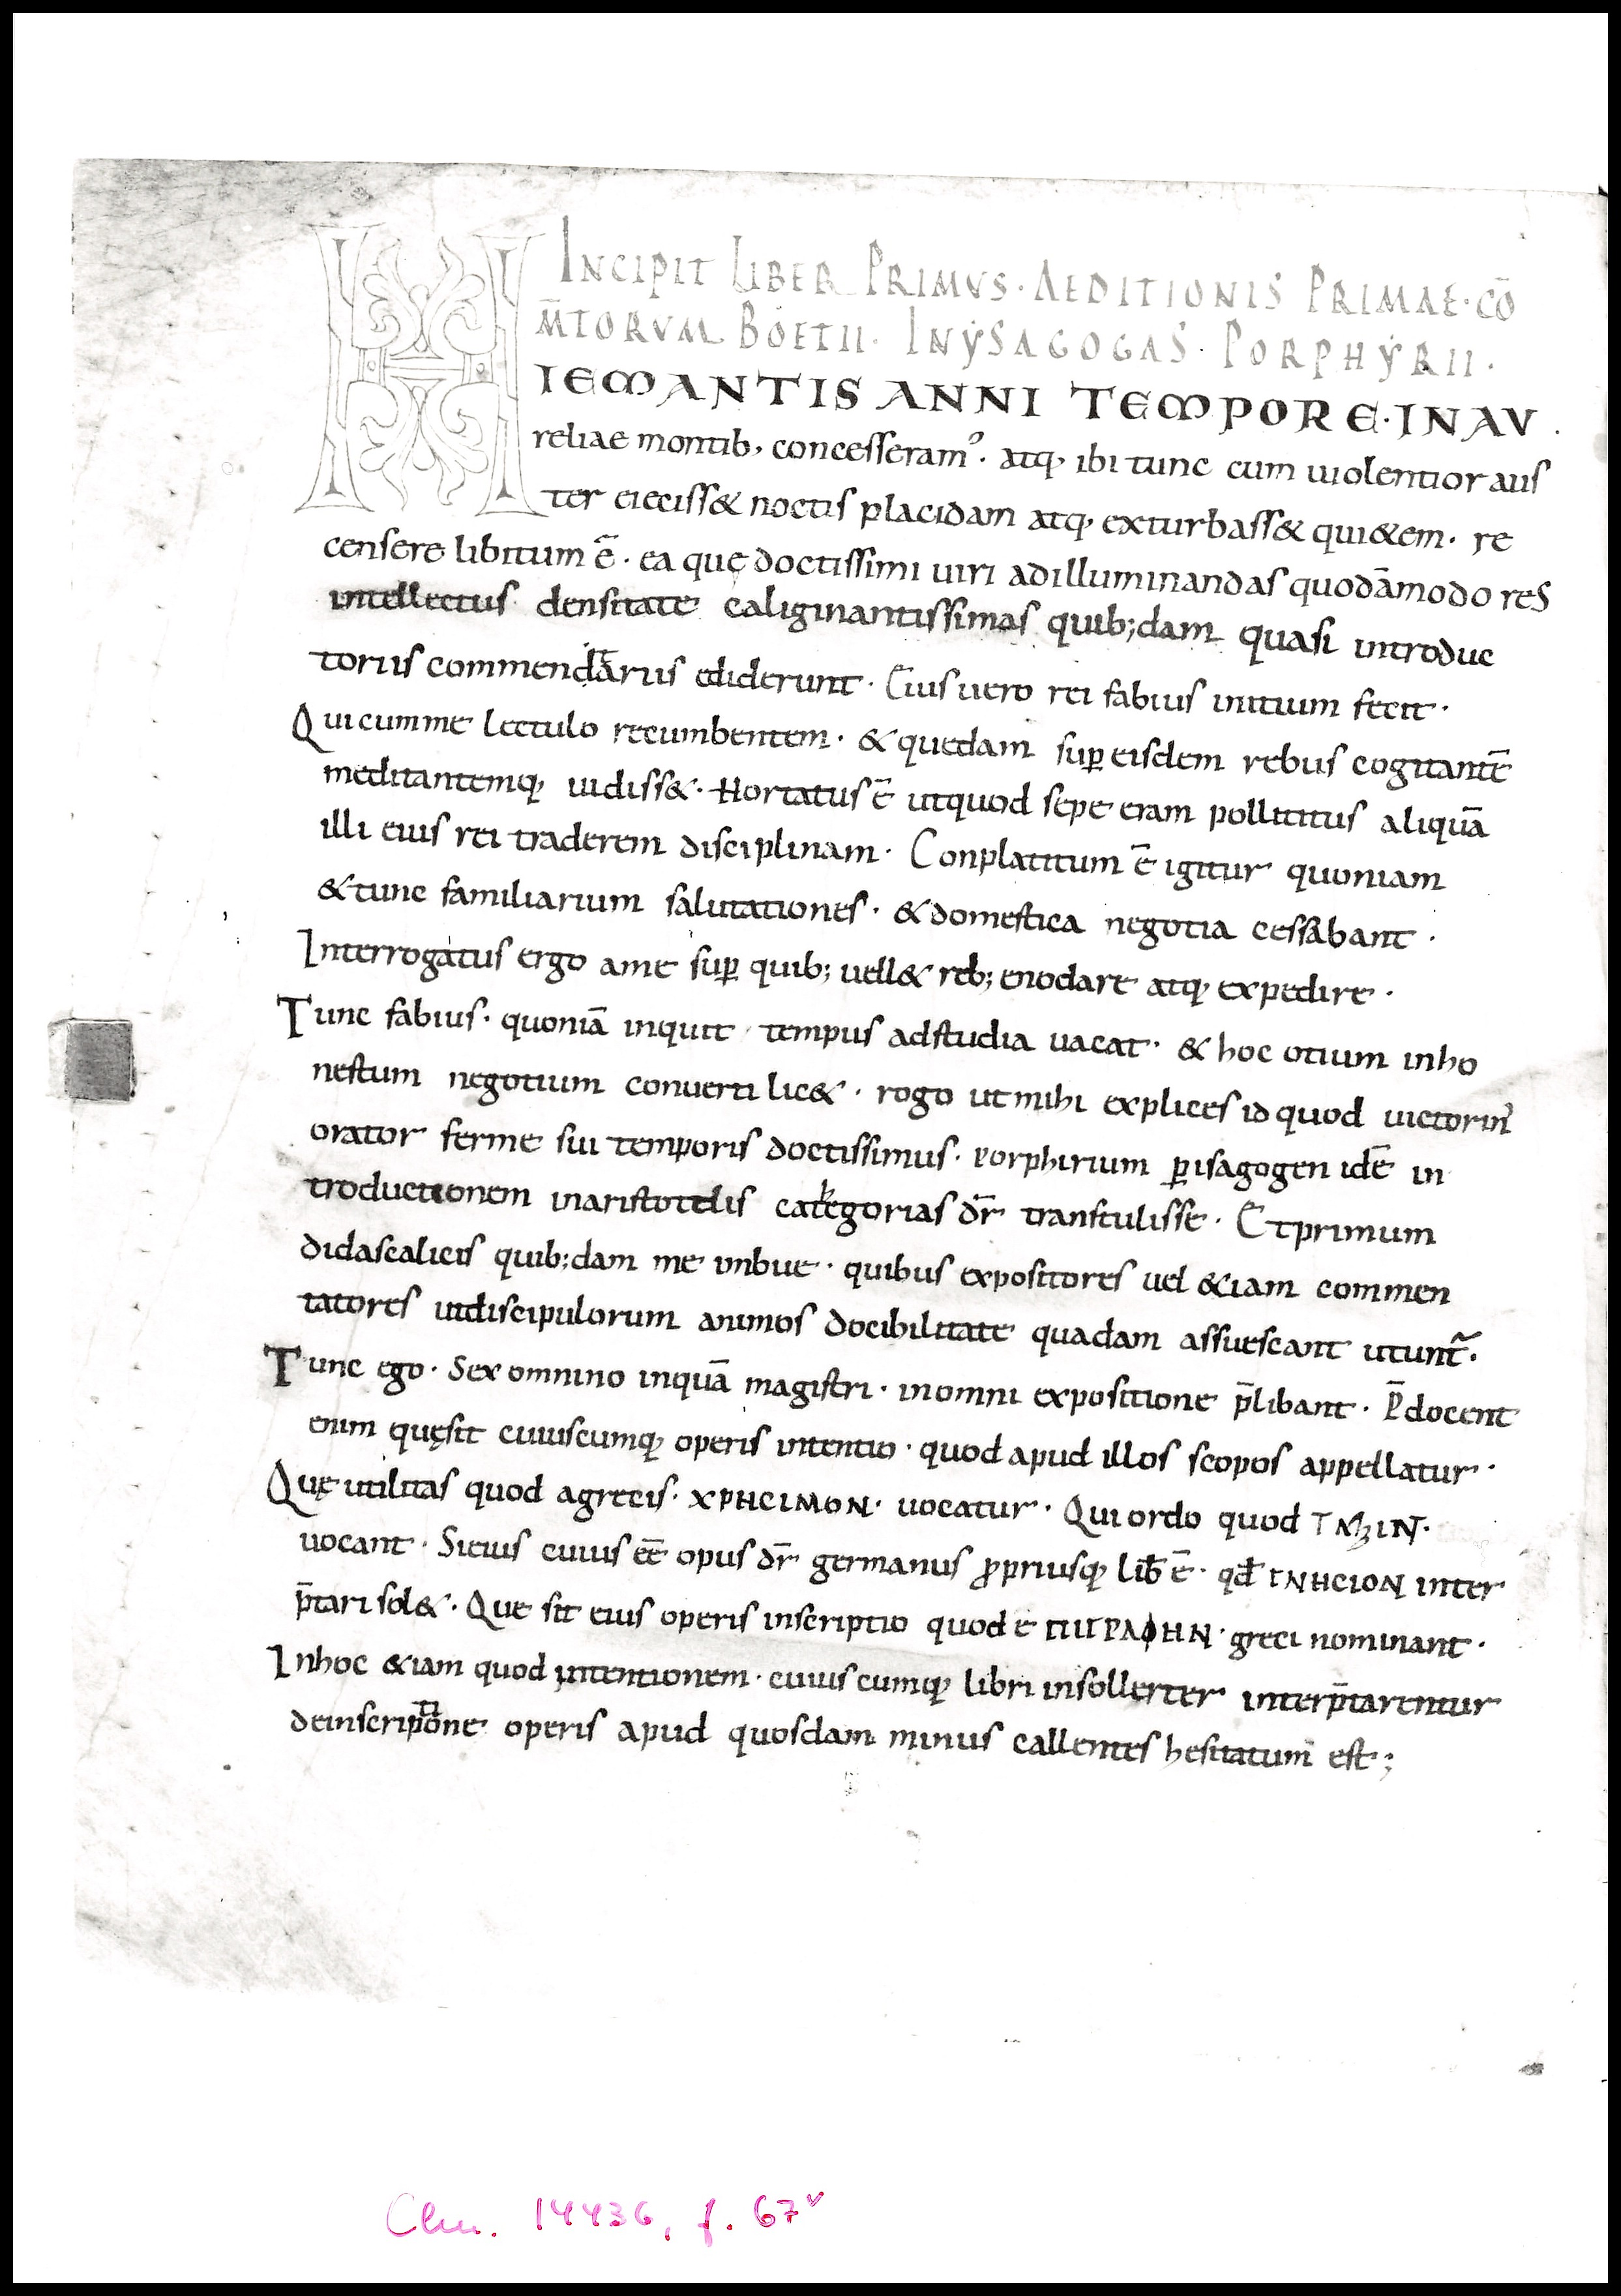 INCIPIT LIBER PRIMVS · AEDITIONIS PRIMAE · CŌ
M̄TORVM BOETII · INẎSAGOGAS · PORPHẎRII ·
HIEMANTIS ANNI TEMPORE · IN AV
reliae montib; concesseram᾿ · atq; ibi tunc cum uiolentior aus
ter eieciss& noctis placidam atq; exturbass& qui&em · re
censere libitum ē · ea quę doctissimi uiri adilluminandas quodāmodo res
intellectus densitate caliginantissimas quib;dam quasi introduc
toriis commendariis ediderunt · Eius uero rei fabius initium fecit ·
Qui cum me lectulo recumbentem · & quedam sup̄ eisdem rebus cogitantē
meditantemq; uidiss& · Hortatus ē ut quod sepe eram pollititus aliquā
illi eius rei traderem disciplinam · Conplatitum ē igitur quoniam
& tunc familiarium salutationes · & domestica negotia cessabant ·
Interrogatus ergo ame sup̄ quib; uell& reb; enodare atq; expedire ·
Tunc fabius · quoniā inquit tempus ad studia uacat · & hoc otium inho
nestum negotium conuerti lic& · rogo ut mihi explices id quod uictorin᾿
orator ferme sui temporis doctissimus · porphirium p̱ isagogen idē in
troductionem inaristotelis categorias dr̄ transtulisse · Et primum
didascalicis quib;dam me imbue · quibus expositores uel &iam commen
tatores ut discipulorum animos docibilitate quadam assuescant utunt̄ ·
Tunc ego · Sex omnino inquā magistri · in omni expositione p̄libant · P̄docent
enim quęsit cuiuscumq; operis intentio · quod apud illos scopos appellatur ·
Quę utilitas quod agrecis · ΧΡΗCΙΜΟΝ · uocatur · Qui ordo quod ΤΑΞΙΝ ·
uocant · Si eius cuius eē opus dr̄ germanus ꝓpriusq; lib̄ ē · qd̄ ΓΝΗCΙΟΝ inter
p̄tari sol& · Que sit eius operis inscriptio quod e ΠΙΓΡΑΦΗΝ · greci nominant ·
In hoc &iam quod intentionem · cuiuscumq; libri insollerter interp̄tarentur
de inscriptione operis apud quosdam minus callentes hesitatum est ;
Clm. 14436, f. 67v